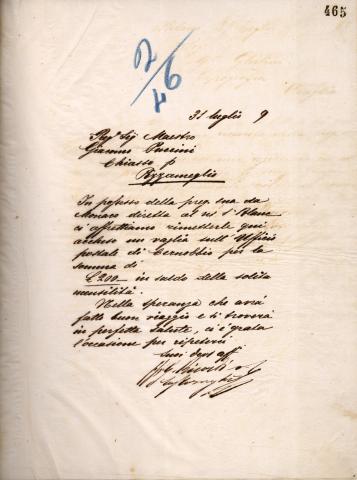 465
2/46
31 luglio 9
Preg Sig Maestro
Giacomo Puccini
Chiasso p
Pizzameglio
In possesso della preg sua da
Monaco diretta al ns S. Blanc
ci affrettiamo rimetterle qui
accluso un vaglia sull'Ufficio
postale di Cernobbio per la
somma di
£ 200 in saldo della solita
mensilità.
Nella speranza che avrà
fatto buon viaggio e si troverà
in perfetta salute, ci è grata
l'occasione per ripeterci
suoi dev aff
Ricordi